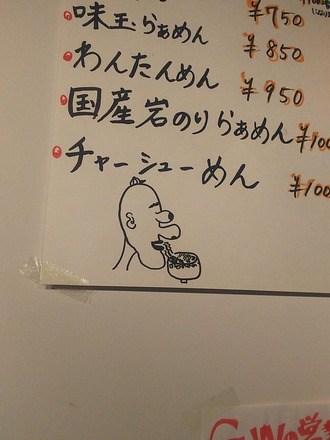 味玉らぁめん ¥750
わんたんめん ¥850
国産岩のりらぁめん ¥950
チャーシューめん ¥100
¥100